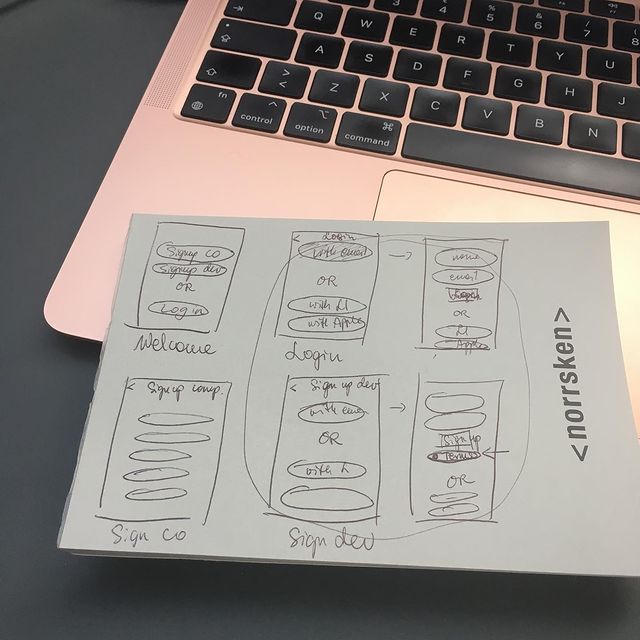 Q W E R T Y
5 6 7 8
A S D F G H J
> < Z X C V B N
fn control option command ⌘
Signup co
Signup dev
OR
Log in
Welcome
< Login
with email
OR
with LI
with Apple
Login
name
email
OR
LI
Apple
< Sign up comp.
Sign co
< Sign up dev
with ema
OR
with L
Sign dev
Sign up
Terms
OR
<norrsken>